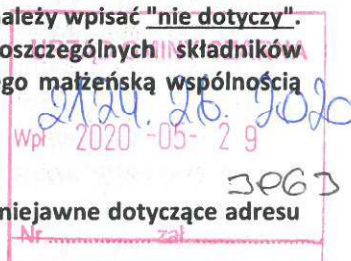 należy wpisać "nie dotyczy".
oszczególnych składników
ego małżeńską wspólnością
2124. 26. 2020
Wpł 2020 -05- 29
niejawne dotyczące adresu
Nr zał